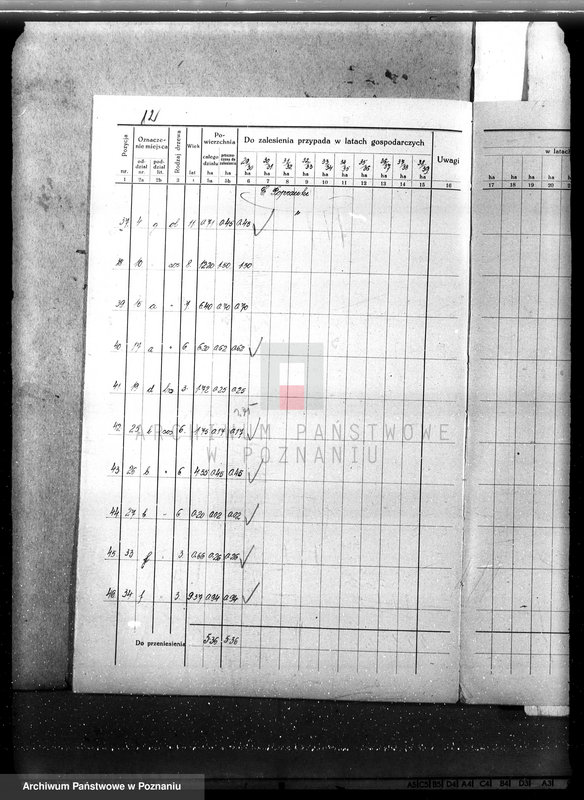 121
Pozycja nr.
Oznaczenie miejsca
oddział nr.
poddział lit.
Rodzaj drzewa
Wiek lat
Powierzchnia
całego działu ha
Do zalesienia przypada w latach gospodarczych
29/30 30/31 31/32 32/33 33/34 34/35 35/36 36/37 37/38 38/39
ha ha ha ha ha ha ha ha ha ha
Uwagi
1 2a 2b 3 4 5a 5b 6 7 8 9 10 11 12 13 14 15 16
w latach
ha ha ha ha
17 18 19 20
37 4 a 11 0.71 0.45 0.45
38 16 cos 8 12.20 1.50 1.50
39 16 a " 7 6.40 0.70 0.70
40 17 a " 6 6.20 0.62 0.62
41 19 d 3 1.72 0.25 0.25
42 25 b cos 6 1.75 0.17 0.17
43 26 b " 6 4.55 0.45 0.45
44 27 b " 6 0.20 0.02 0.02
45 33 f 3 0.66 0.26 0.26
46 34 f 3 9.37 0.94 0.94
Do przeniesienia 5.36 5.36
ARCHIWUM PAŃSTWOWE
W POZNANIU
Archiwum Państwowe w Poznaniu
A5 C5 B5 D4 A4 C4 B4 D3 A3